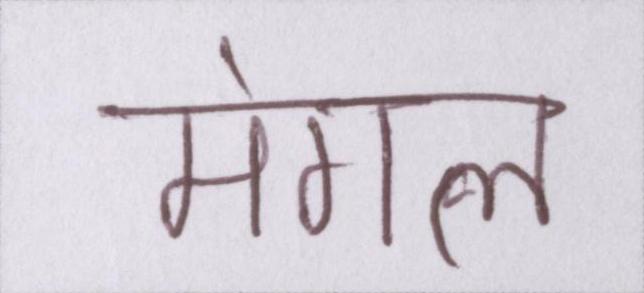 मंगल